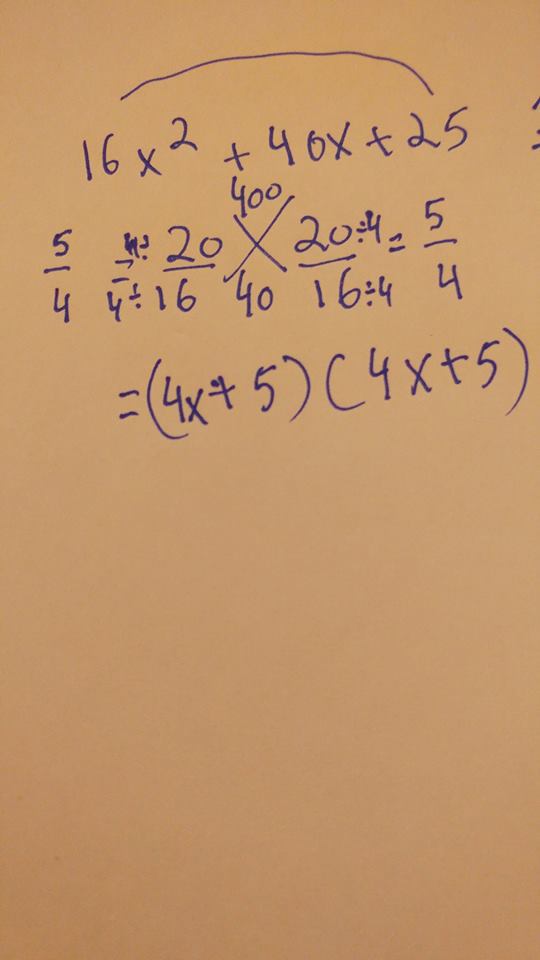 16x² + 40x + 25
400
5/4 = 20/16 40 20÷4/16÷4 = 5/4
4÷
= (4x + 5) (4x + 5)